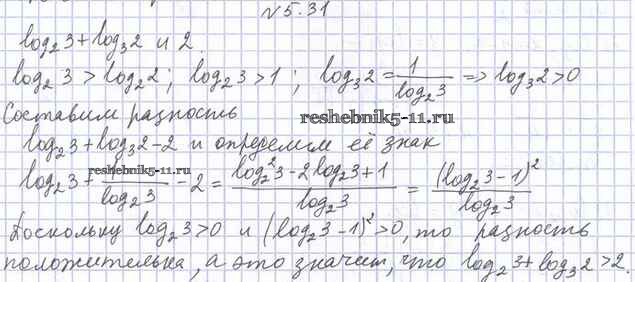 № 5.31
log₂3 + log₃2 и 2.
log₂ 3 > log₂2 ; log₂3 > 1 ; log₃2 = 1/log₂3 => log₃2 > 0
Составим разность
reshebnik5-11.ru
log₂3 + log₃2 - 2 и определим её знак
reshebnik5-11.ru
log₂3 + 1/log₂3 - 2 = (log₂²3 - 2 log₂3 + 1)/log₂3 = (log₂3 - 1)²/log₂3
Поскольку log₂3 > 0 и (log₂3 - 1)² > 0, то разность
положительна, а это значит, что log₂3 + log₃2 > 2.